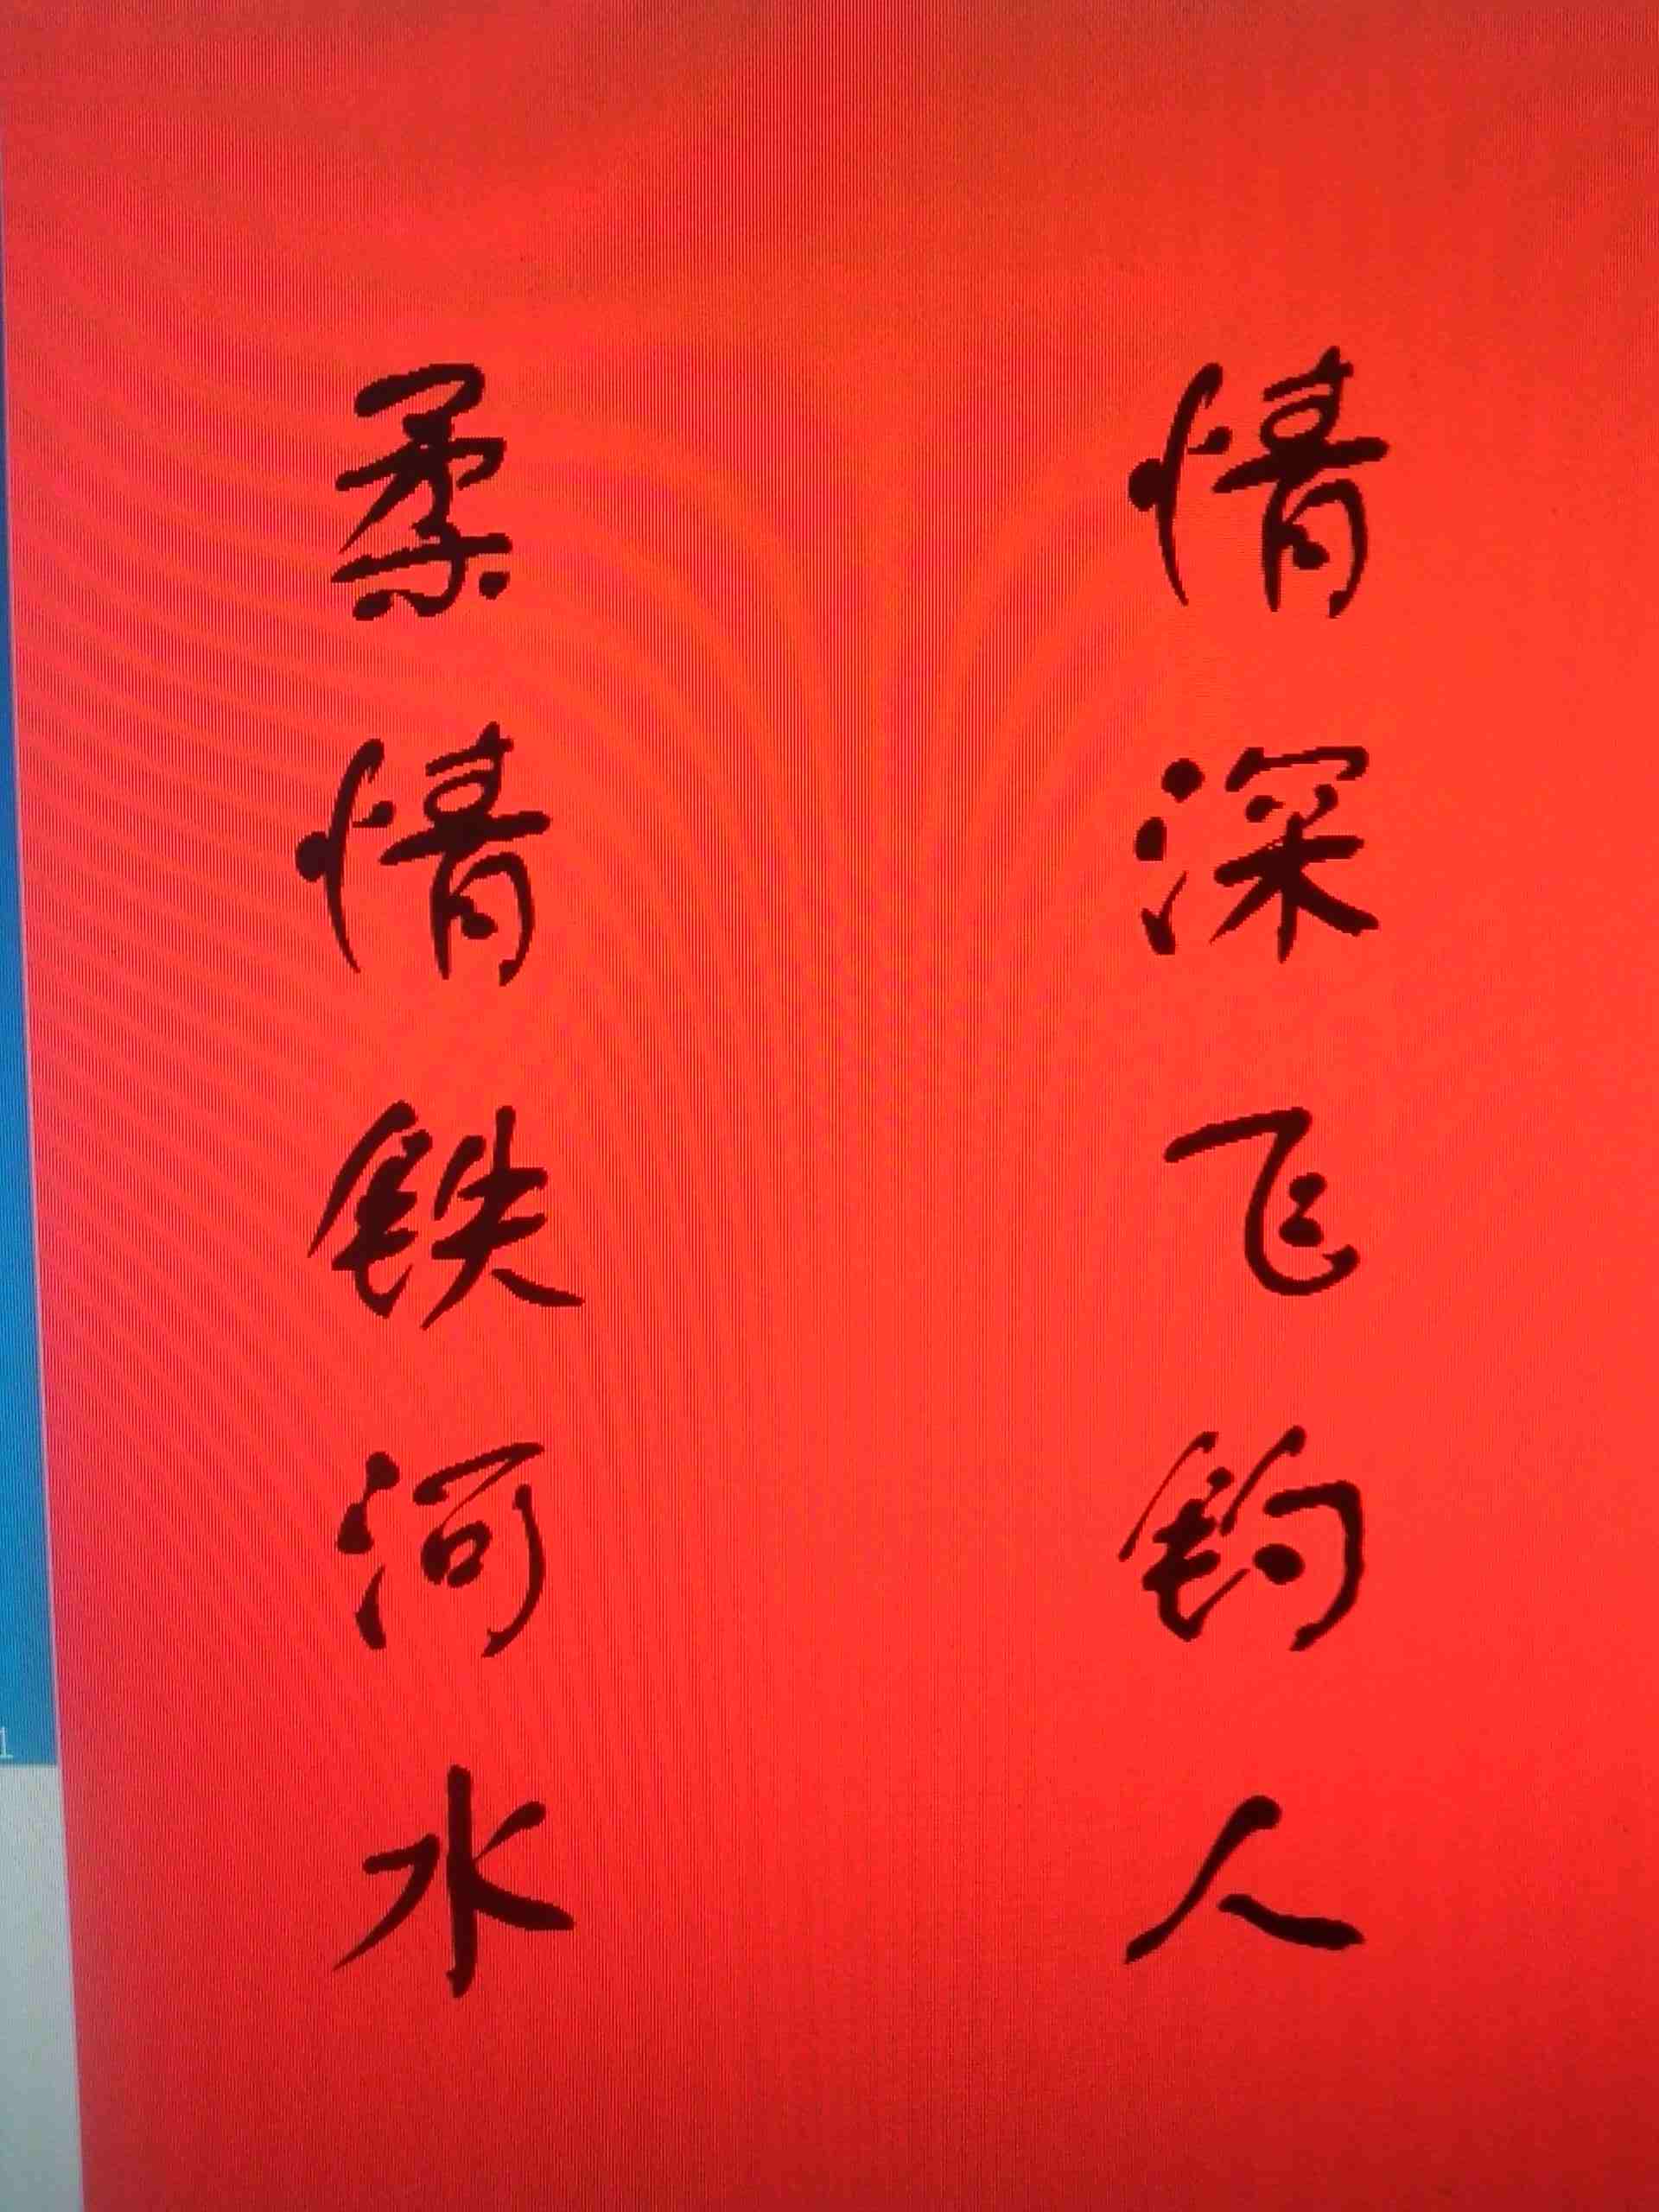 情深飞钓人
柔情铁河水